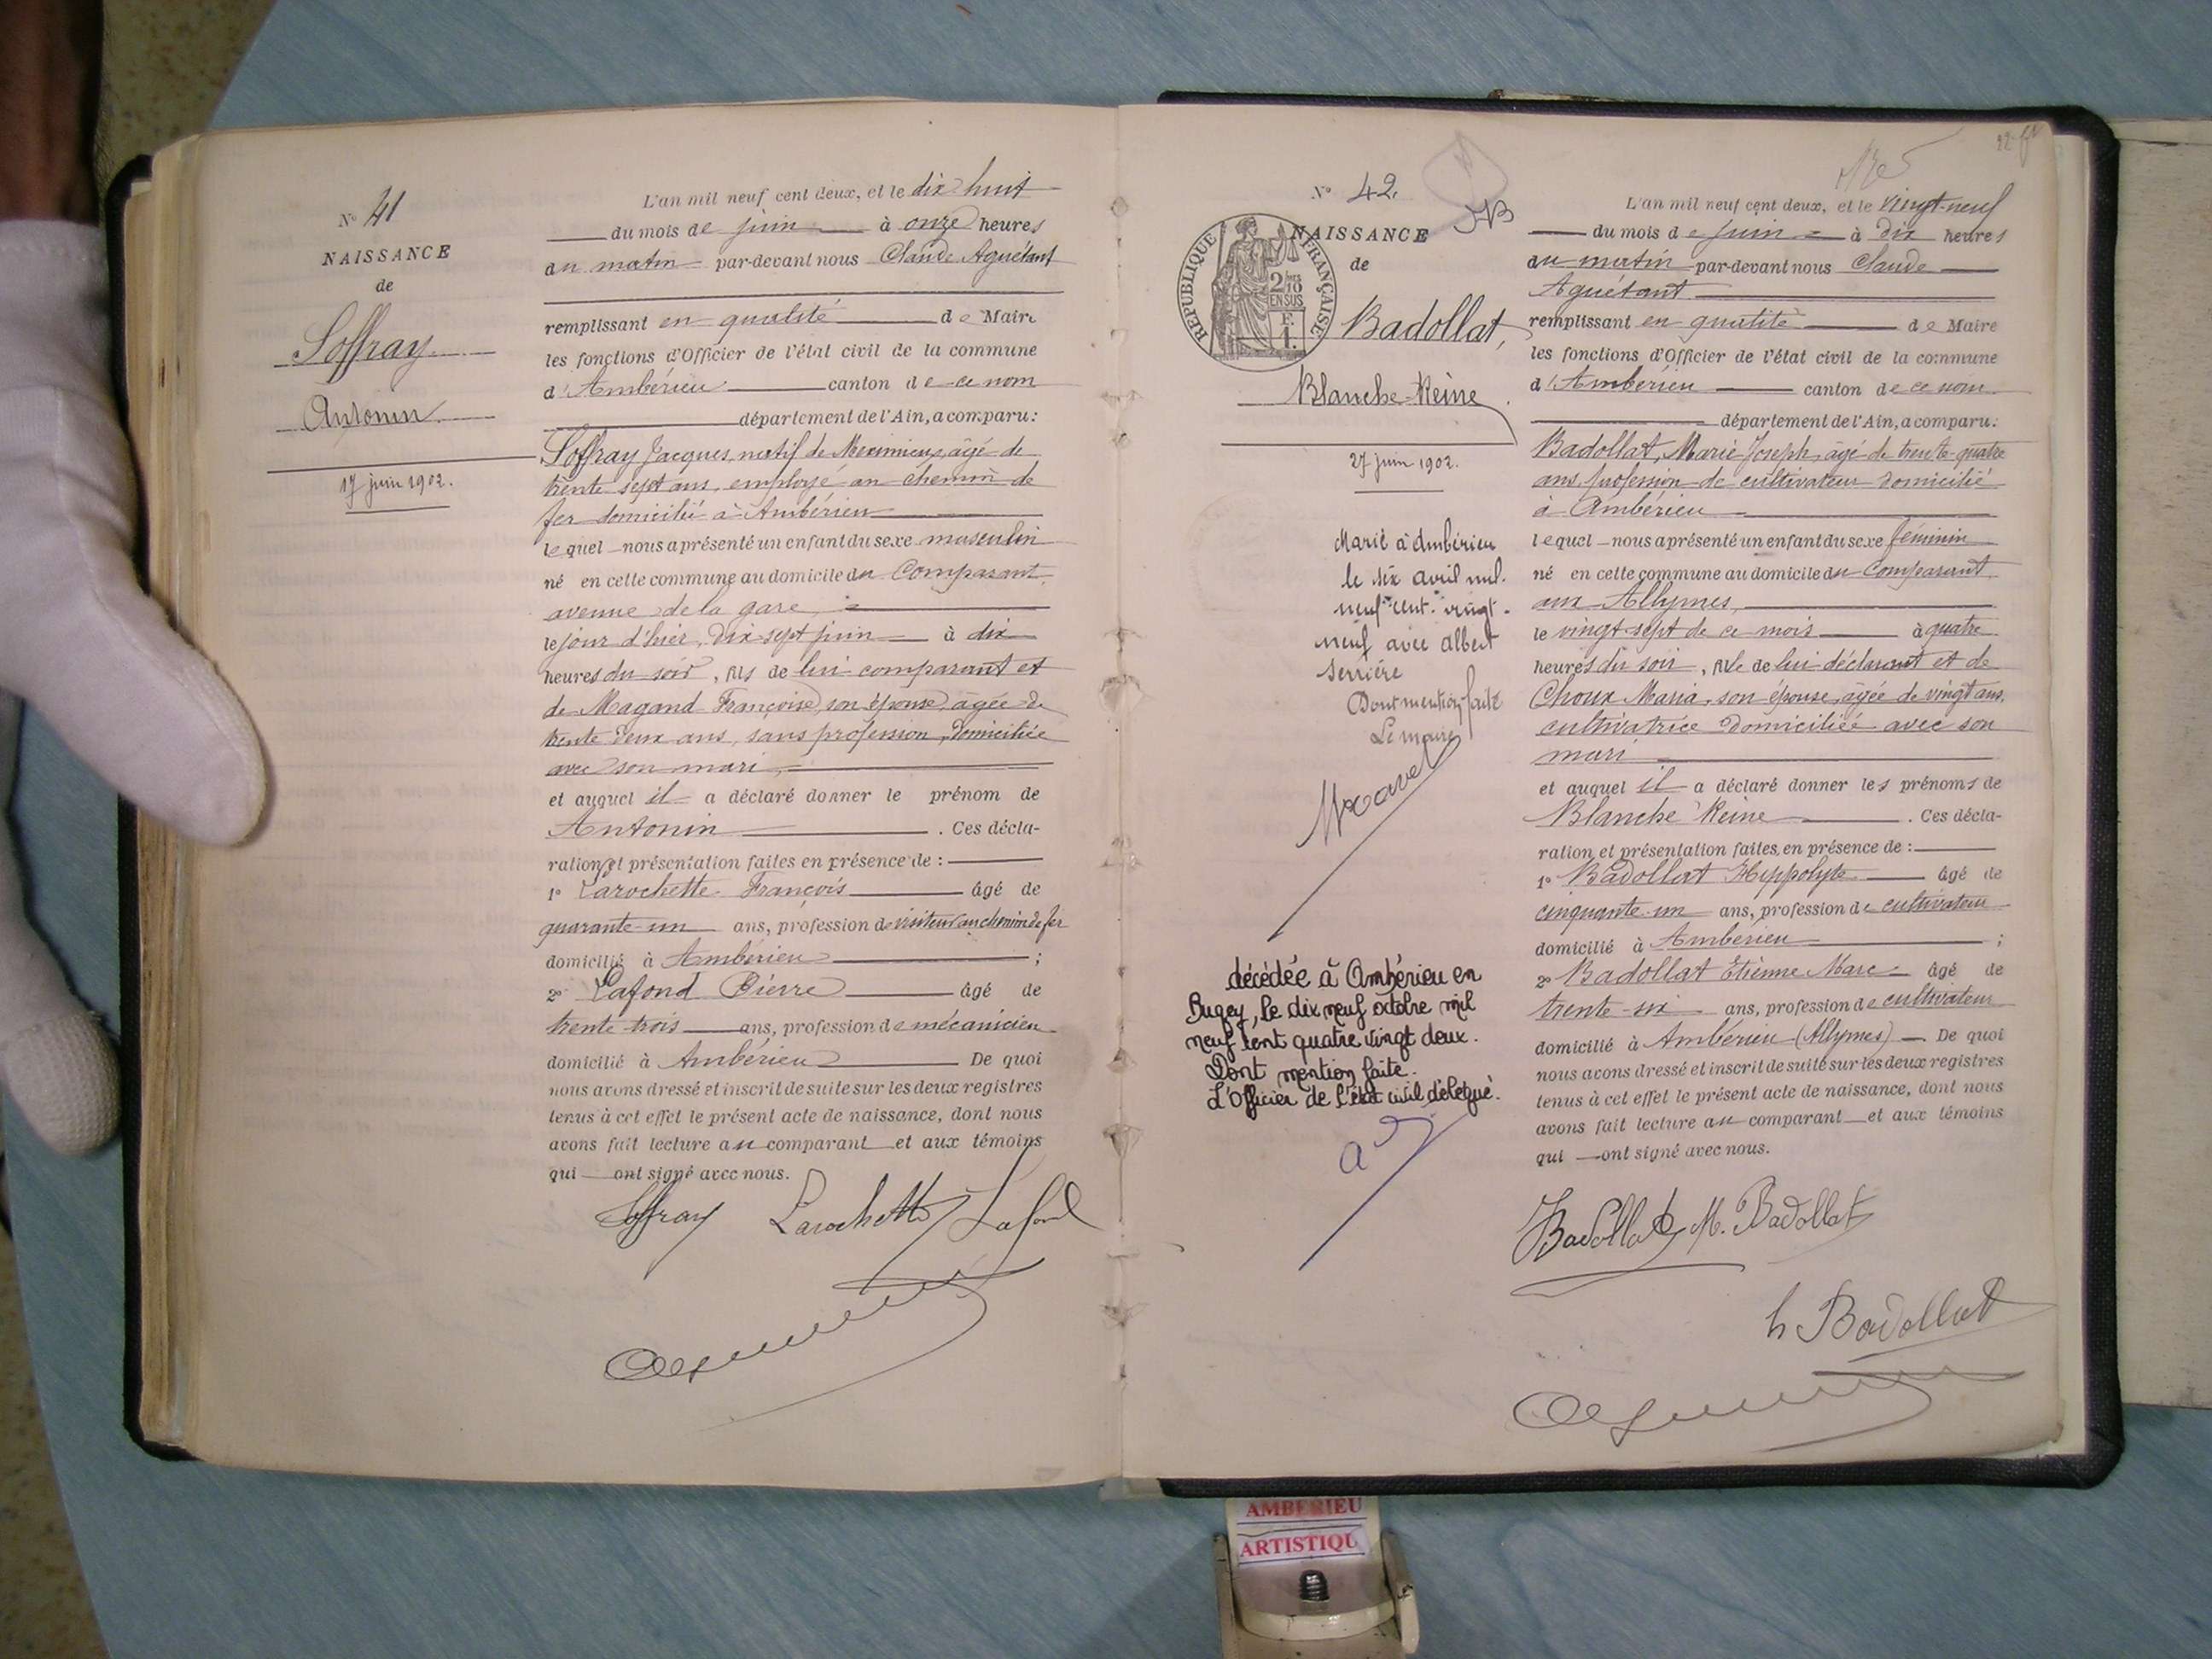 N° 41
NAISSANCE
de
Soffray
Antonin
17 juin 1902.
L'an mil neuf cent deux, et le dix huit
du mois de juin à onze heures
du matin par-devant nous Claude Aguétant
remplissant en qualité de Maire
les fonctions d'Officier de l'état civil de la commune
d'Ambérieu canton de ce nom
département de l'Ain, a comparu:
Soffray Jacques, natif de Meximieux, âgé de
trente sept ans, employé au chemin de
fer domicilié à Ambérieu
lequel nous a présenté un enfant du sexe masculin
né en cette commune au domicile du Comparant,
avenue de la gare,
le jour d'hier, dix-sept juin à dix
heures du soir, fils de lui comparant et
de Magand Françoise, son épouse, âgée de
trente deux ans, sans profession, domiciliée
avec son mari,
et auquel il a déclaré donner le prénom de
Antonin. Ces décla-
ration et présentation faites en présence de :
1° Larochette François âgé de
quarante-un ans, profession de visiteur au chemin de fer
domicilié à Ambérieu ;
2° Lafond Pierre âgé de
trente trois ans, profession de mécanicien
domicilié à Ambérieu De quoi
nous avons dressé et inscrit de suite sur les deux registres
tenus à cet effet le présent acte de naissance, dont nous
avons fait lecture au comparant et aux témoins
qui ont signé avec nous.
Soffray Larochette Lafond
N° 42.
NAISSANCE
de
RÉPUBLIQUE FRANÇAISE
2/10
EN SUS
Badollat,
Blanche-Reine
27 juin 1902.
Marié à Ambérieu
le six avril mil-
neuf-cent-vingt-
neuf avec Albert
Serrière
Dont mention faite
Le maire
décédée à Ambérieu en
Bugey, le dix neuf octobre mil
neuf cent quatre vingt deux.
Dont mention faite.
L'Officier de l'état civil délégué.
L'an mil neuf cent deux, et le vingt-neuf
du mois de juin à dix heures
du matin par-devant nous Claude
Aguétant
remplissant en qualité de Maire
les fonctions d'Officier de l'état civil de la commune
d'Ambérieu canton de ce nom
département de l'Ain, a comparu:
Badollat, Marie Joseph, âgé de trente-quatre
ans, profession de cultivateur domicilié
à Ambérieu
lequel nous a présenté un enfant du sexe féminin
né en cette commune au domicile du Comparant
aux Allymes,
le vingt-sept de ce mois à quatre
heures du soir, fille de lui déclarant et de
Choux Maria, son épouse, âgée de vingt ans,
cultivatrice domiciliée avec son
mari
et auquel il a déclaré donner les prénoms de
Blanche Reine. Ces décla-
ration et présentation faites, en présence de :
1° Badollat Hippolyte âgé de
cinquante-un ans, profession de cultivateur
domicilié à Ambérieu ;
2° Badollat Etienne Marc âgé de
trente-six ans, profession de cultivateur
domicilié à Ambérieu (Allymes). De quoi
nous avons dressé et inscrit de suite sur les deux registres
tenus à cet effet le présent acte de naissance, dont nous
avons fait lecture au comparant et aux témoins
qui ont signé avec nous.
Badollat M. Badollat
h Badollat
AMBERIEU
ARTISTIQU